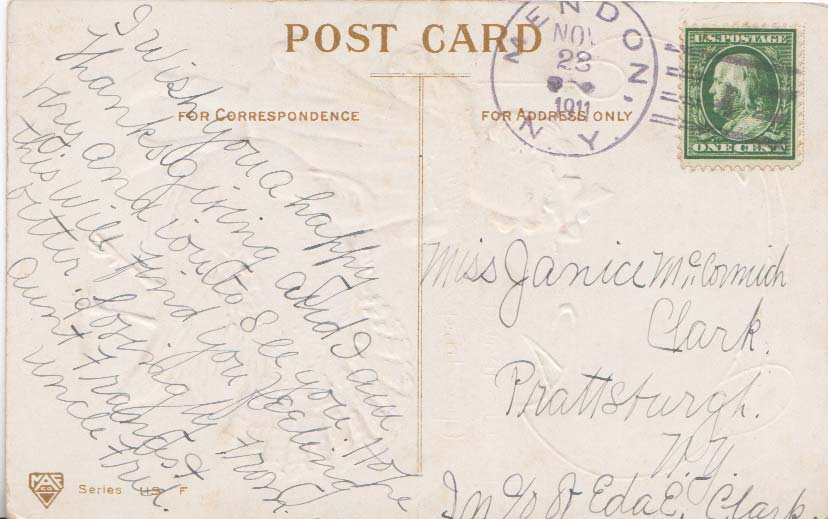 POST CARD
FOR CORRESPONDENCE
FOR ADDRESS ONLY
MENDON, N.Y.
NOV
1911
U.S. POSTAGE
ONE CENT
I wish you a happy
thanksgiving and I am
and to see you Hope
this will find you feeling
better good night from
aunt &
uncle
Miss Janice McCormick
Clark.
Prattsburgh.
N.Y.
In c/o Eda E. Clark
Series US F